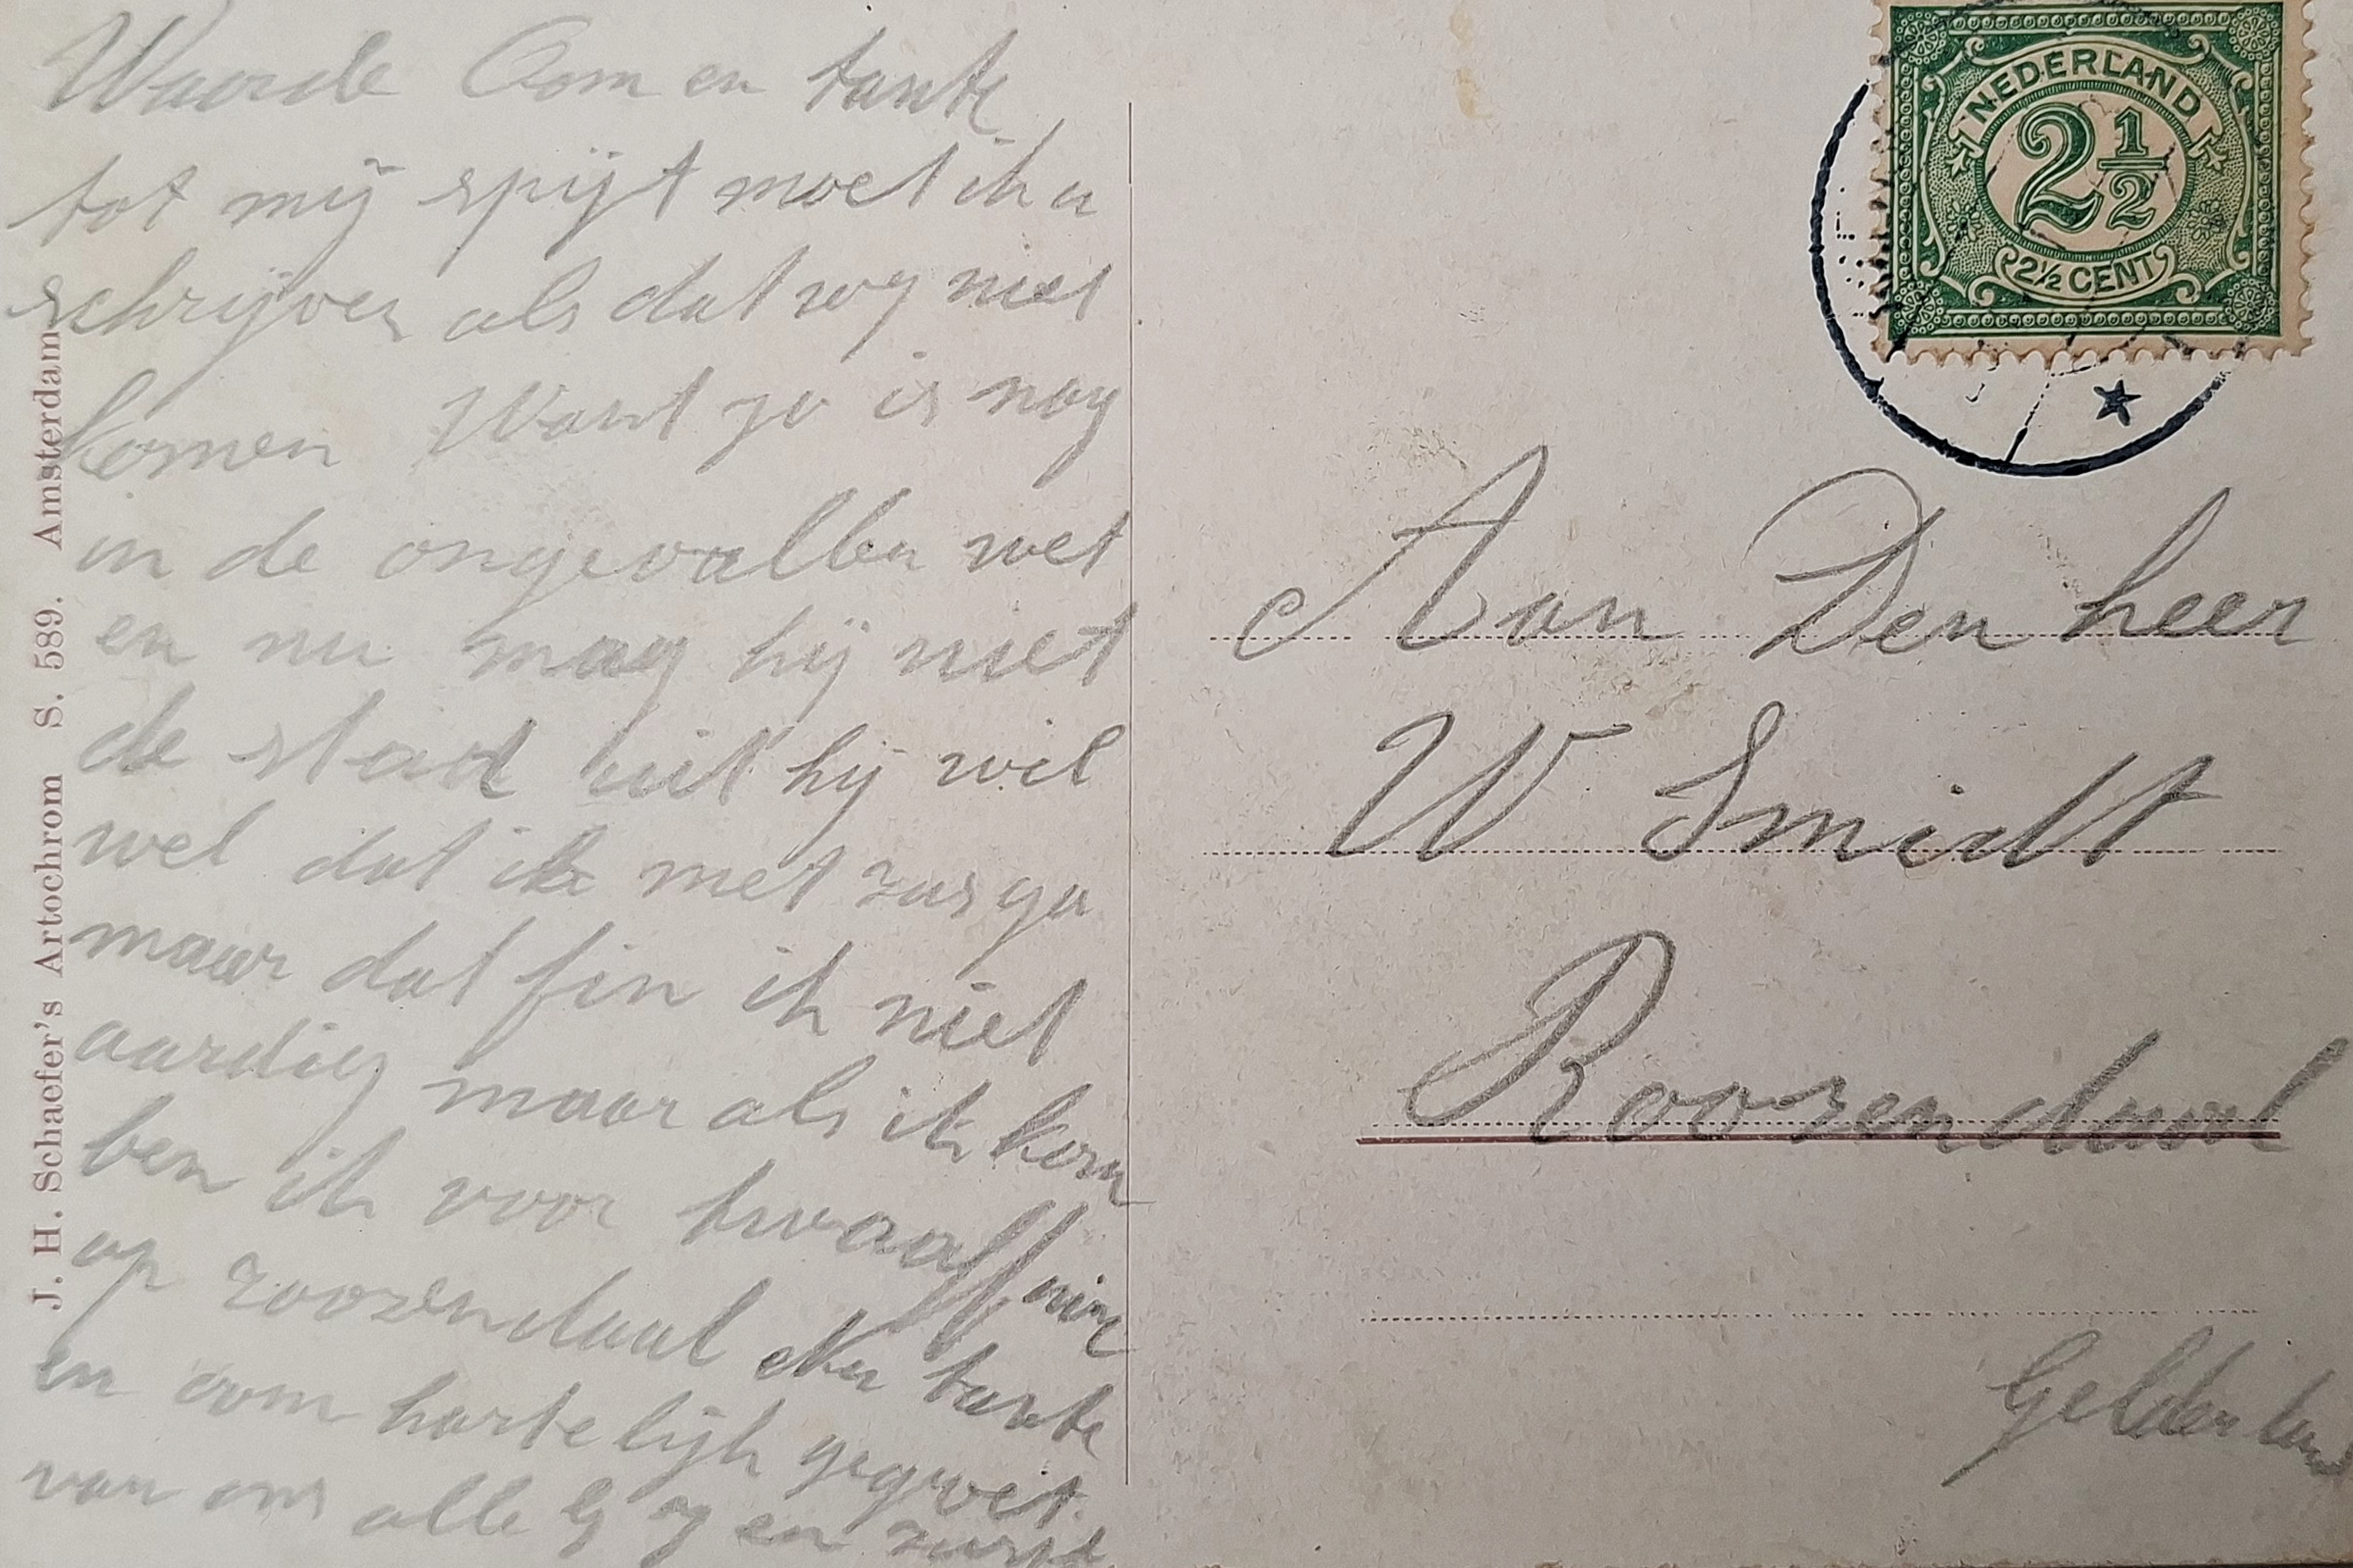 Waarde Oom en tante
tot mij spijt moet ik u
schrijven als dat wy niet
komen Want jo is nog
in de ongevallen wet
en nu mag hij niet
de stad uit hij wil
wel dat ik met zus ga
maar dat fin ik niet
aardig maar als ik kom
ben ik voor twaalf uur
op roozendaal Nu tante
en oom hartelijk gegroet
van ons alle G J en
J. H. Schaefer's Artochrom S. 589. Amsterdam
NEDERLAND
2½
2½ CENT
Aan Den heer
W Smidt
Roozendaal
Gelderland